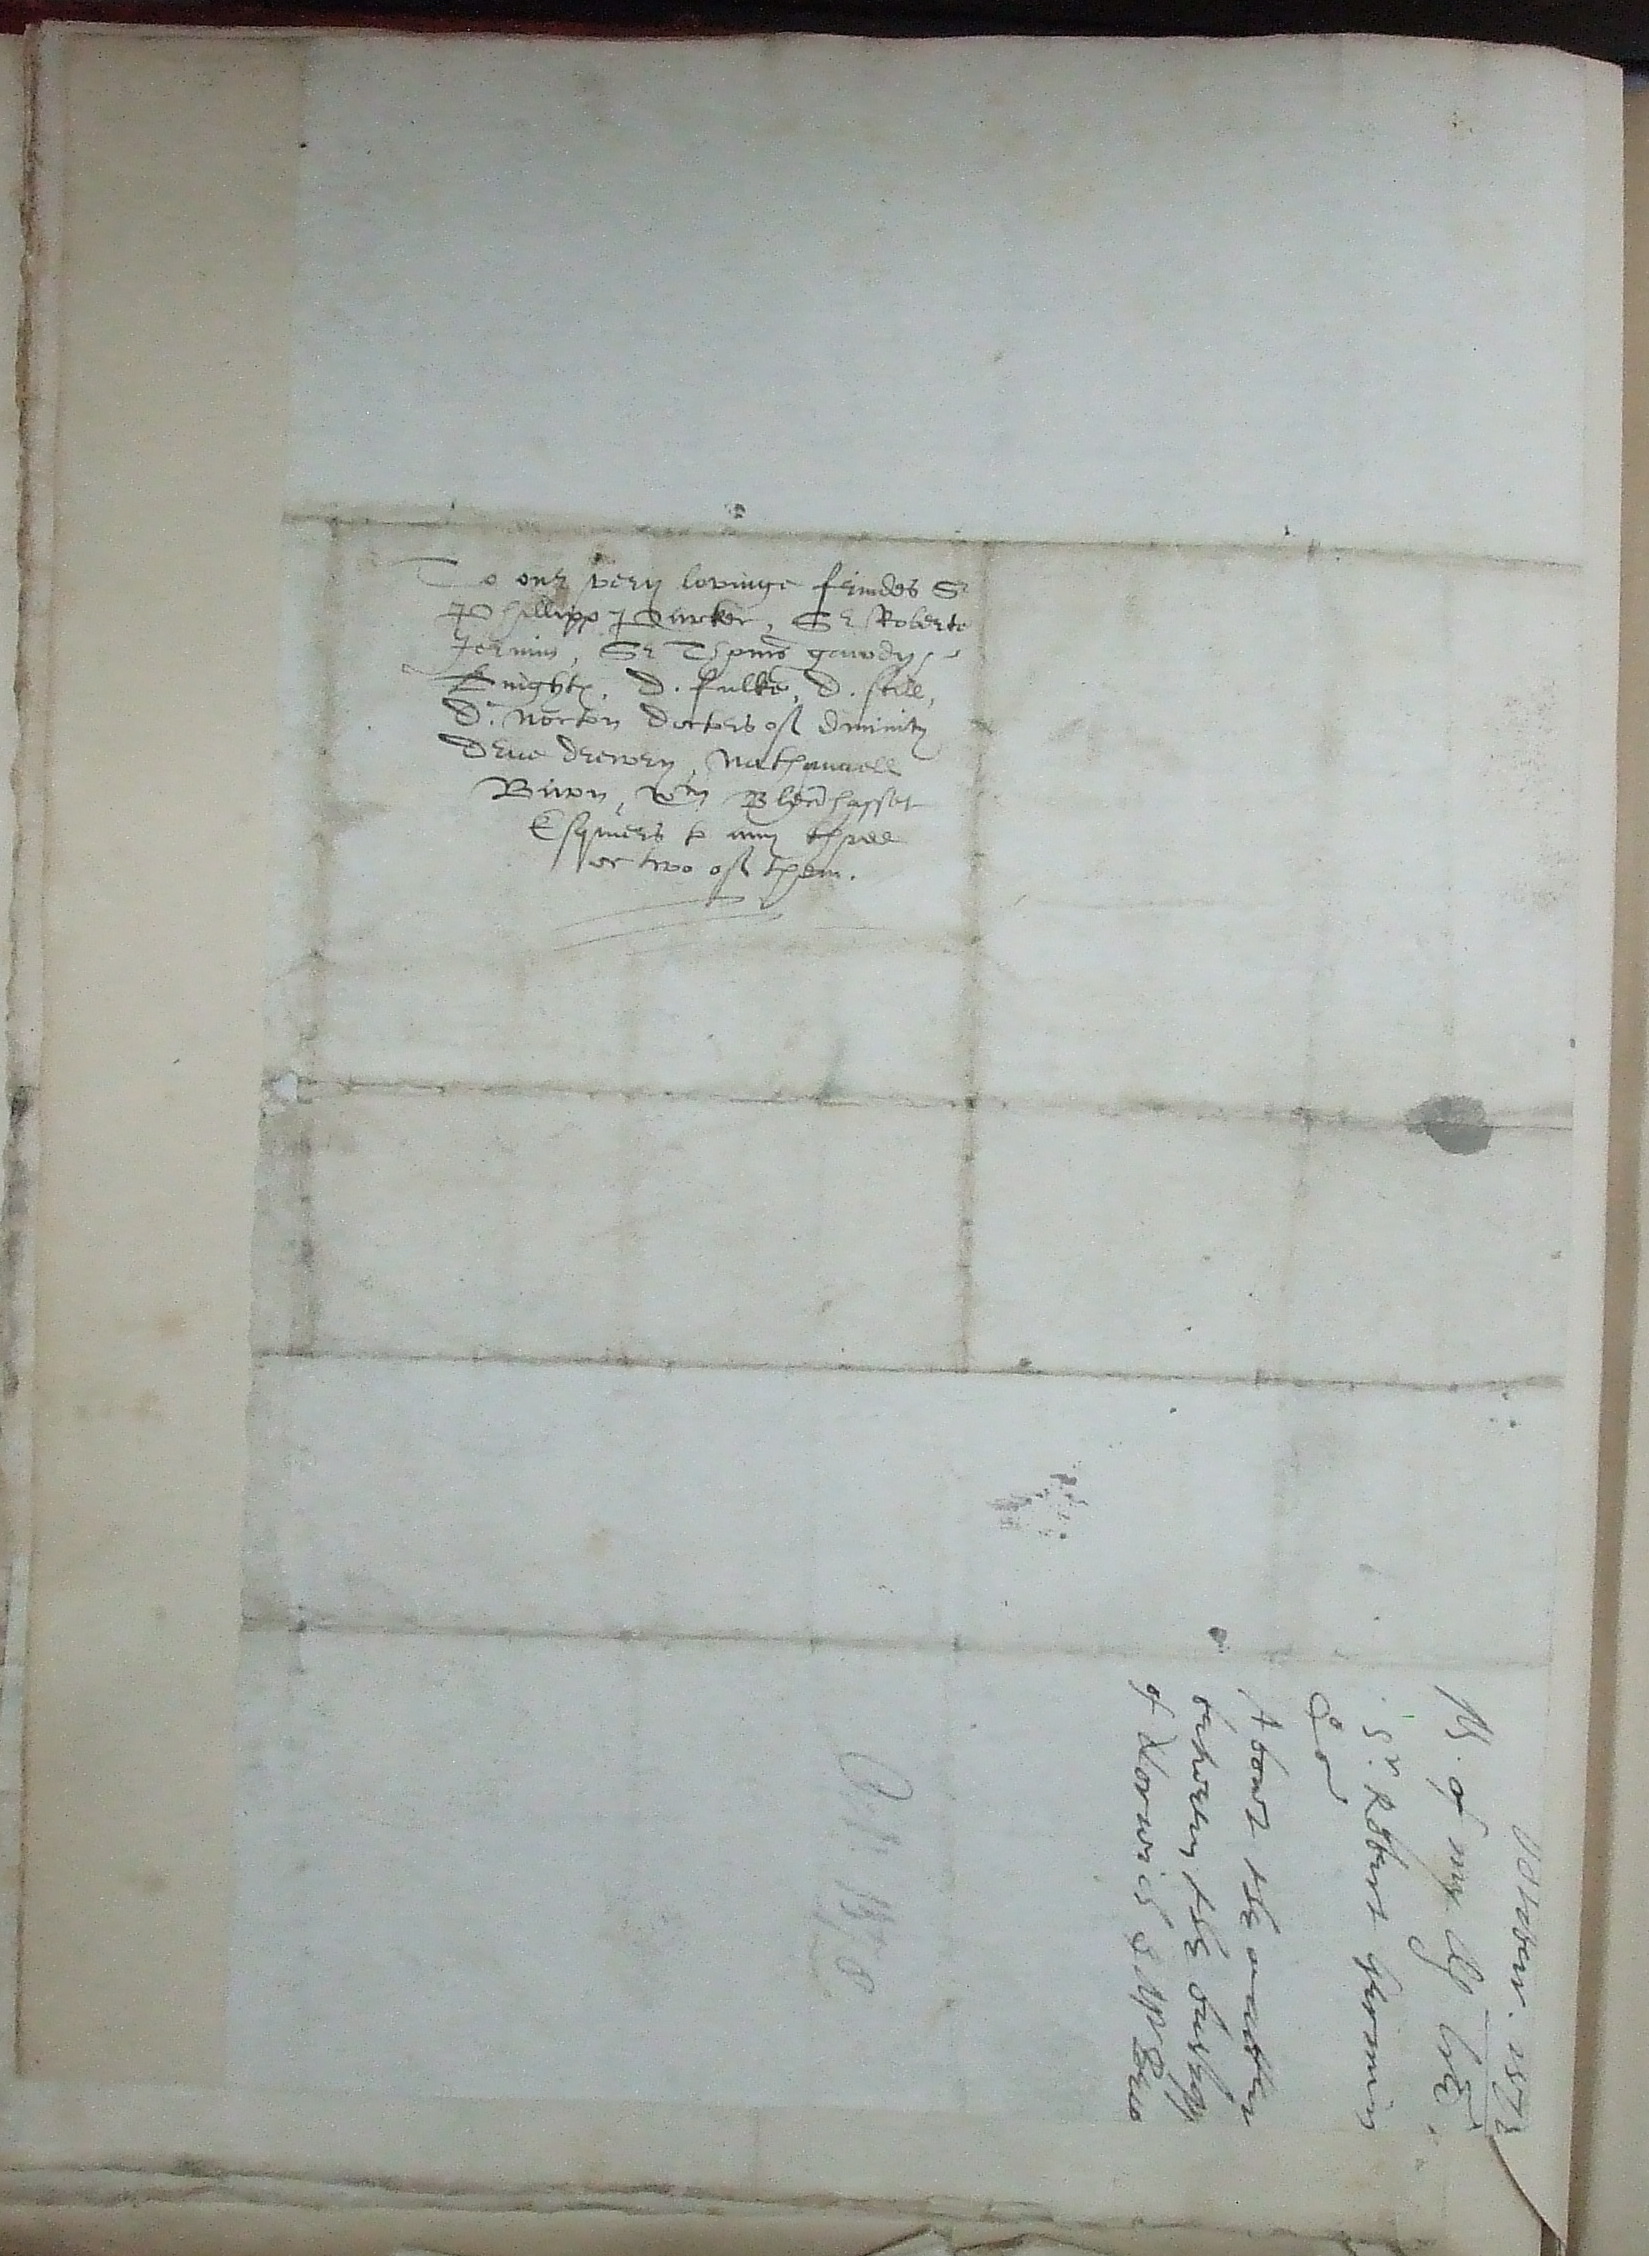 To our very lovinge frindes Sr
Phillipp Parker, Sr Roberte
Jermin, Sr Thomas gawdy
knightes, D. fulke, D. still,
D. Norton doctors off divinity
Drue drewry, Nathanaell
Bacon, Wm Blenhasset
Esquiers to any three
or two off them.
1578
M. of my ll lre.
Sr. Robert Jermin
&c
About the matter
betwen the bushopp
of Norwich & Mr